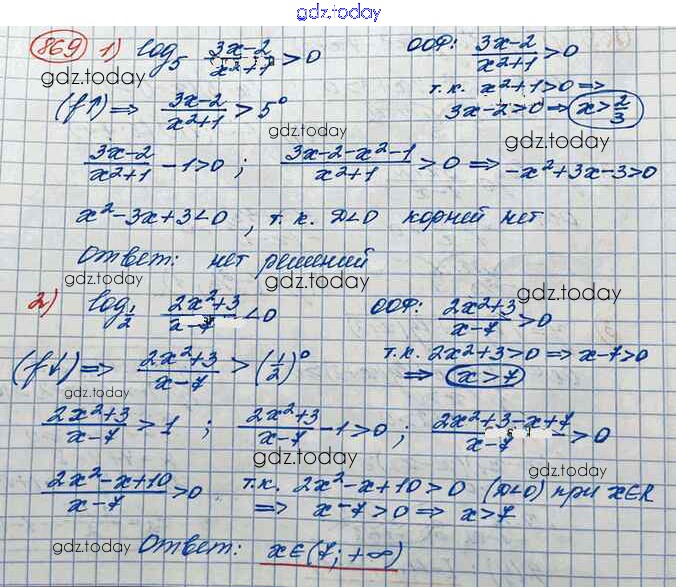 gdz.today
869 1) log₅ (3x-2)/(x²+1) > 0 ООФ: (3x-2)/(x²+1) > 0
gdz.today
т.к. x²+1>0 ⇒
(f↑) ⇒ (3x-2)/(x²+1) > 5⁰ 3x-2>0 ⇒ x > 2/3
gdz.today gdz.today
(3x-2)/(x²+1) - 1 > 0 ; (3x-2-x²-1)/(x²+1) > 0 ⇒ -x²+3x-3>0
x²-3x+3<0 , т.к. D<0 корней нет
gdz.today
Ответ: нет решений
gdz.today gdz.today
2) log_{1/2} (2x²+3)/(x-7) < 0 ООФ: (2x²+3)/(x-7) > 0
т.к. 2x²+3>0 ⇒ x-7>0
(f↓) ⇒ (2x²+3)/(x-7) > (1/2)⁰ ⇒ x>7
gdz.today gdz.today
(2x²+3)/(x-7) > 1 ; (2x²+3)/(x-7) - 1 > 0 ; (2x²+3-x+7)/(x-7) > 0
gdz.today gdz.today
(2x²-x+10)/(x-7) > 0 т.к. 2x²-x+10>0 (D<0) при x∈R
⇒ x-7>0 ⇒ x>7
gdz.today
Ответ: x∈(7; +∞)
gdz.today